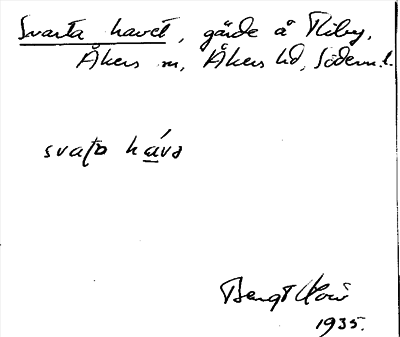 Svarta havet, gärde å Riby,
Åkers sn, Åkers hd, Söderm.l.
svaʈa háva
Bengt
1935.